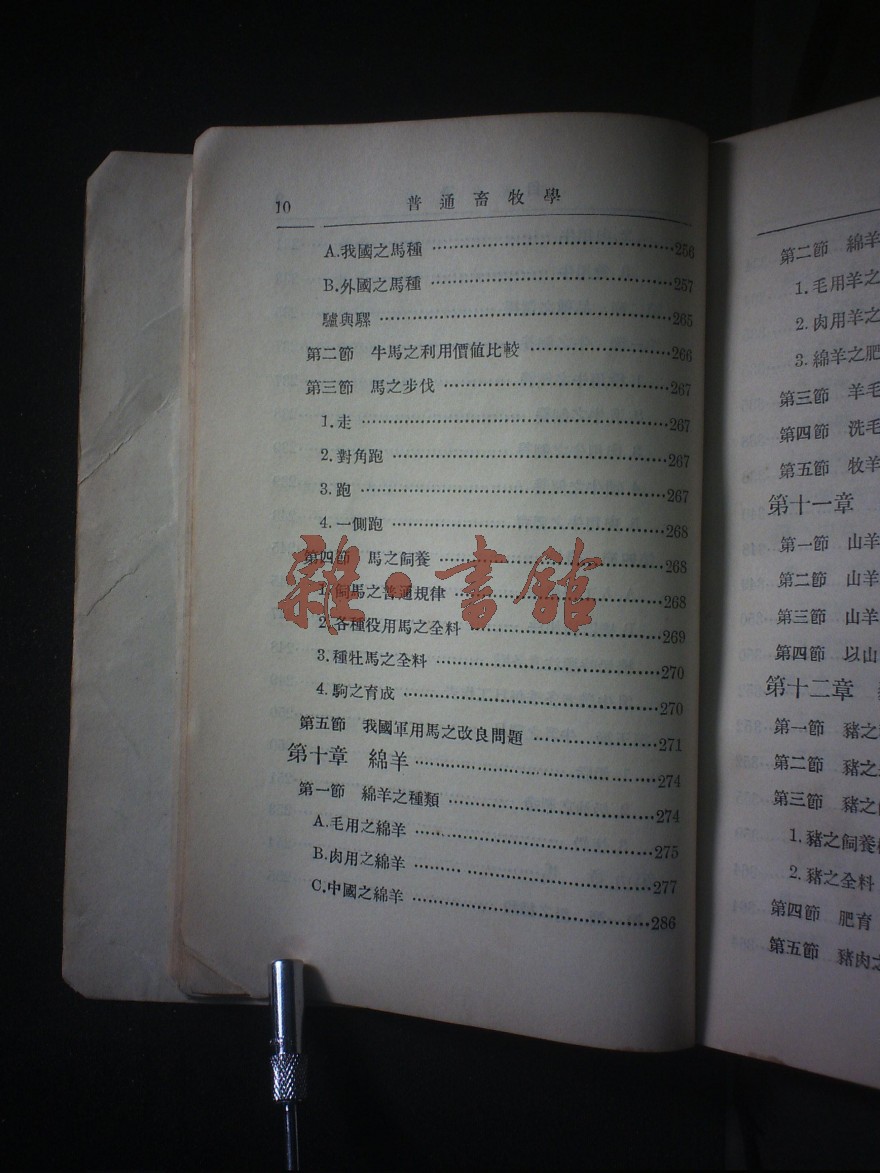 10 普通畜牧學
A.我國之馬種……256
B.外國之馬種……257
驢與騾……265
第二節 牛馬之利用價値比較……266
第三節 馬之步伐……267
1.走……267
2.對角跑……267
3.跑……267
4.一側跑……268
第四節 馬之飼養……268
1.飼馬之普通規律……268
2.各種役用馬之全料……269
3.種牡馬之全料……270
4.駒之育成……270
第五節 我國軍用馬之改良問題……271
第十章 綿羊……274
第一節 綿羊之種類……274
A.毛用之綿羊……275
B.肉用之綿羊……277
C.中國之綿羊……286
雜·書館
第二節 綿羊
1.毛用羊之
2.肉用羊之
3.綿羊之肥
第三節 羊毛
第四節 洗毛
第五節 牧羊
第十一章
第一節 山羊
第二節 山羊
第三節 山羊
第四節 以山
第十二章
第一節 豬之
第二節 豬之
第三節 豬之
1.豬之飼養
2.豬之全料
第四節 肥育
第五節 豬肉之